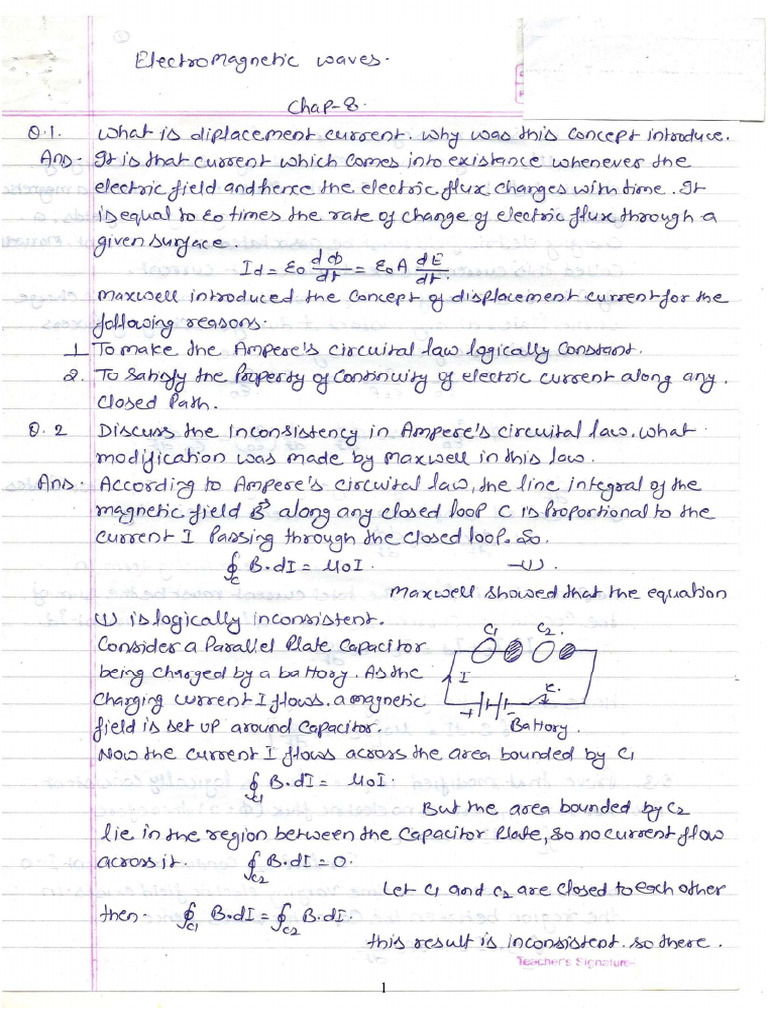 ElectroMagnetic waves.
Chap-8.
Q.1. What is diplacement current. Why was this concept introduce.
Ans- It is that current which comes into existance whenever the
electric field and hence the electric flux changes with time. It
is equal to ε0 times the rate of change of electric flux through a
given surface.
Id = ε0 dΦ/dt = ε0A dE/dt.
Maxwell introduced the concept of displacement current for the
following reasons.
1. To make the Ampere's circuital law logically constant.
2. To satisfy the Property of continuity of electric current along any
closed Path.
Q.2 Discuss the inconsistency in Ampere's circuital law. What
modification was made by Maxwell in this law.
Ans- According to Ampere's circuital law, the line integral of the
magnetic field B along any closed loop C is Proportional to the
current I Passing through the closed loop. So.
∮c B.dI = μ0I. —(1).
Maxwell showed that the equation
(1) is logically inconsistent.
Consider a Parallel Plate Capacitor
being charged by a battory. As the
charging current I flows. a magnetic
field is set up around Capacitor.
C1 C2.
I
+ - K.
Battory.
Now the current I flows across the area bounded by C1
∮C1 B.dI = μ0I.
But the area bounded by C2
lie in the region between the Capacitor Plate, so no current flow
across it. ∮C2 B.dI = 0.
Let C1 and C2 are closed to each other
then. ∮C1 B.dI = ∮C2 B.dI.
this result is inconsistent. so there.
Teacher's Signature
1